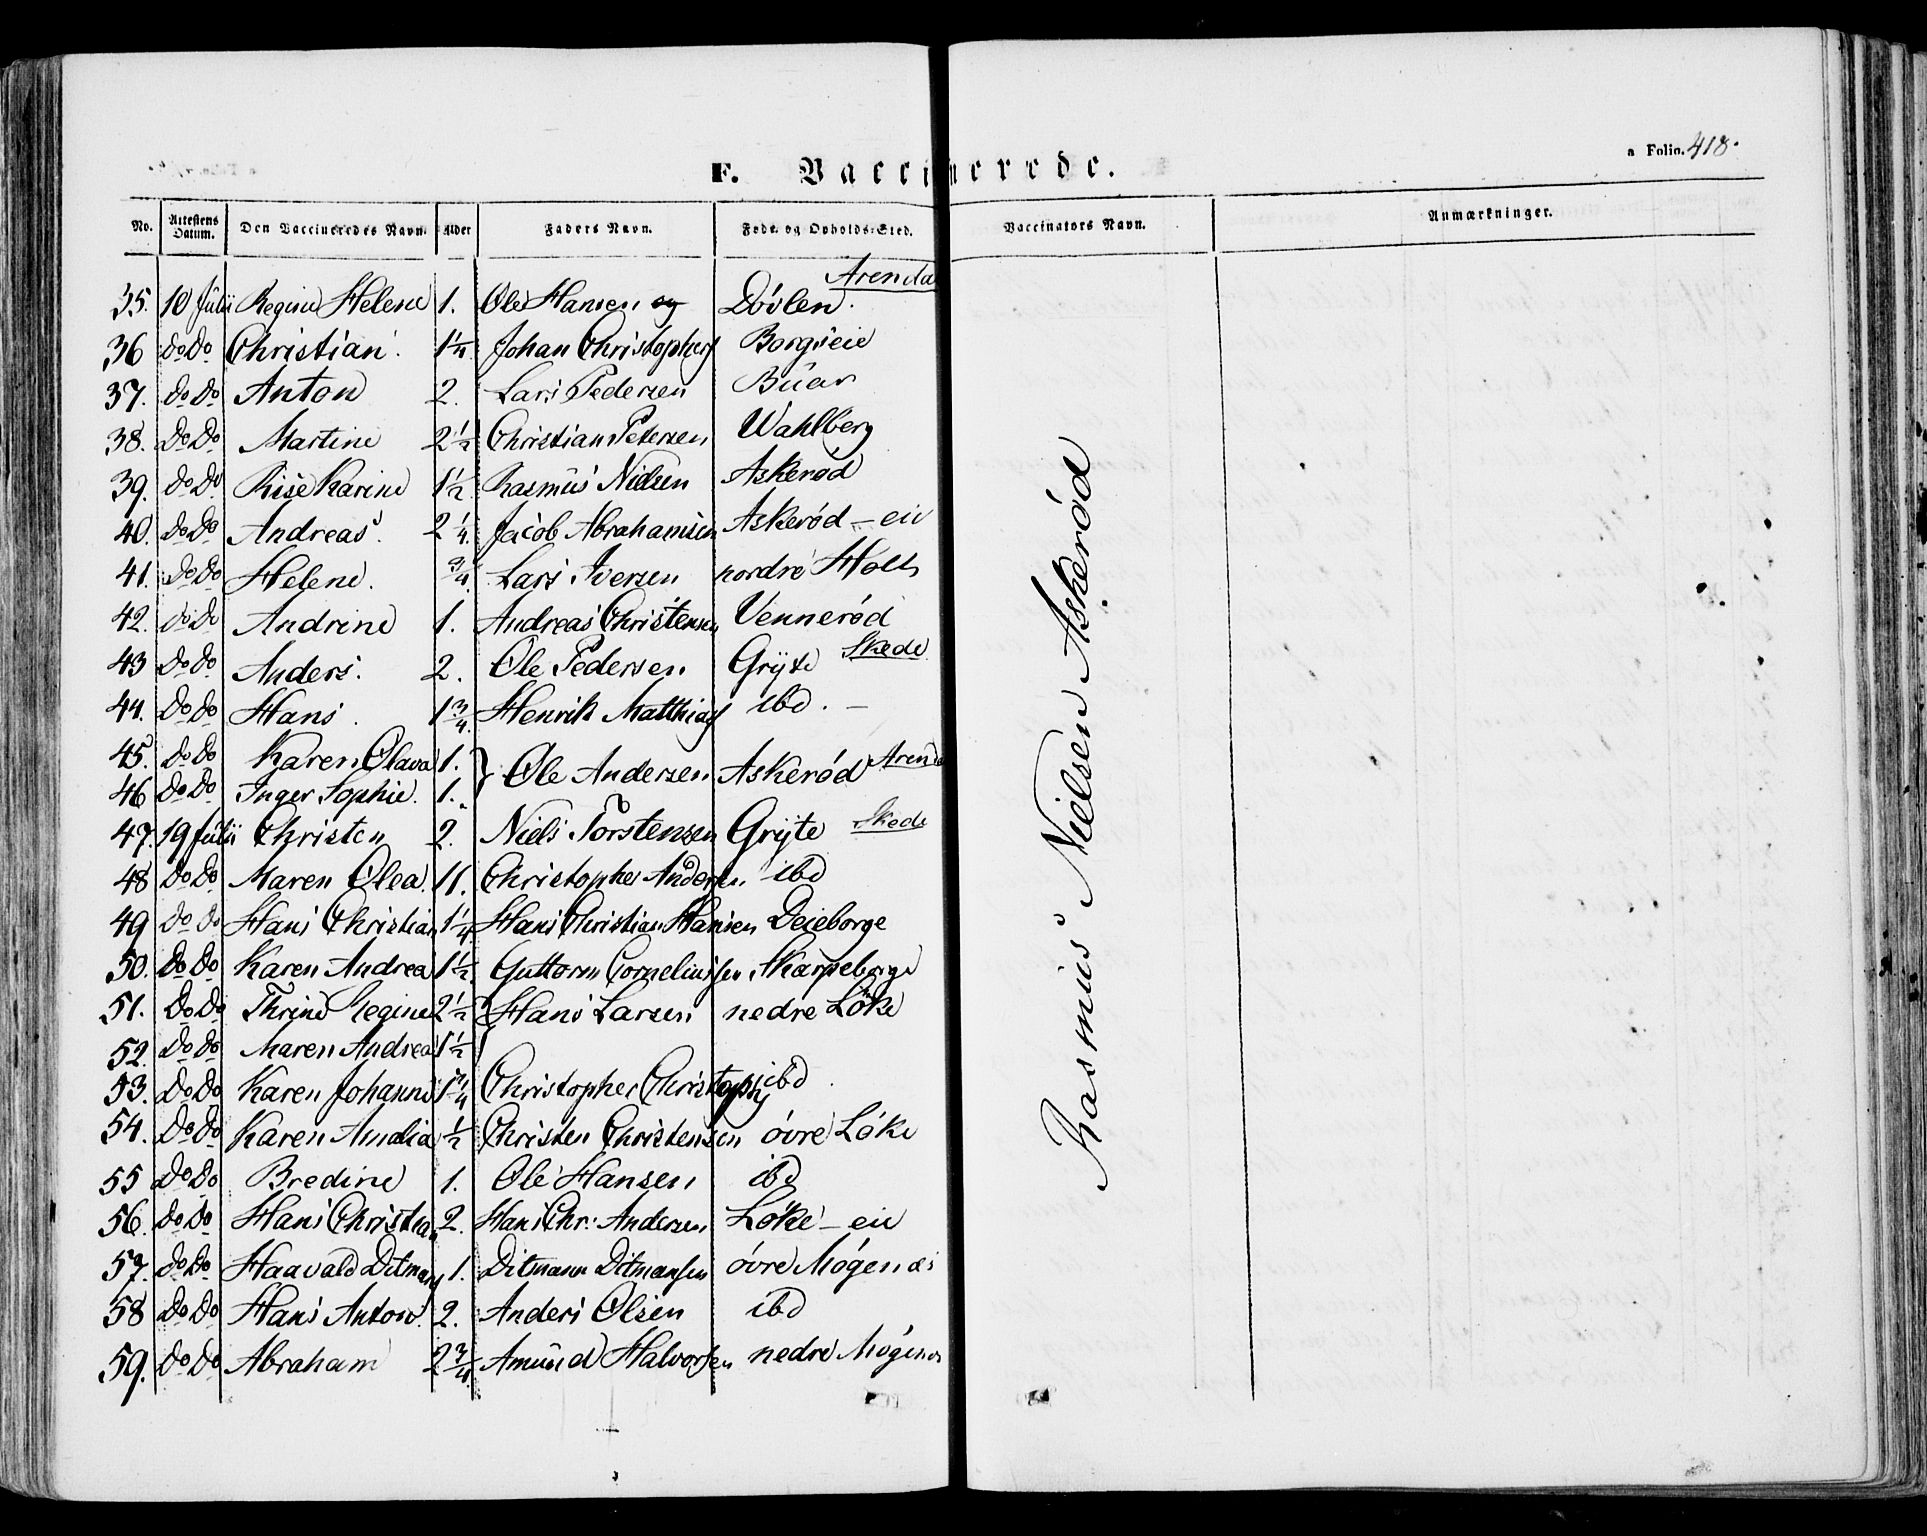 a Folio. 418.
F. Vaccinerede.
No. Attestens Datum. Den Vaccineredes Navn. Alder Faders Navn. Føde- og Opholds-Sted. Vaccinators Navn. Anmærkninger.
Arendal
35. 10 Julii Regine Helene 1. Ole Hansen Døvlen.
36 do Do Christian. 1 1/4. Johan Christophers Borgseie
37. do Do Anton 2. Lars Pedersen Buar
38. Do Do Martine 2 1/2 Christian Petersen Wahlberg
39. do Do Karine 1 1/2 Rasmus Nielsen Askerød
40. Do Do Andreas. 2 1/4. Jacob Abrahamsen Askerød - eie
41. Do Do Helene. 3/4. Lars Iversen nordre Holt
42. do Do Andrine 1. Andreas Christensen Vennerød
43 Do Do Anders. 2. Ole Pedersen Gryte Skede
44. Do Do Hans. 1 3/4. Henrik Matthias ibd. -
45. Do Do Karen Olava 1. } Ole Andersen Askerød Arend
46 Do Do Inger Sophie. 1.
47. 19 Julii Christen 2. Niels Torstensen Gryte Skede
48 Do Do Maren Olea. 11. Christopher Andersen ibd
49 Do Do Hans Christian 1 1/4 Hans Christian Hansen Deieborge
50. Do Do Karen Andrea 1 1/2 Guttorm Corneliussen Skarpeborge
51. Do Do Thrine Regine 2 1/2 } Hans Larsen nedre Løke
52. Do Do Maren Andrea 1 1/2
53. Do Do Karen Johanne 1 3/4 Christopher Christophs ibd.
54. Do Do Karen Amalia 1/2 Christen Christensen øvre Løke
55 Do Do Bredine 1. Ole Hansen ibd
56. Do Do Hans Christian 2. Hans Chr: Andersen Løke - eie
57. Do Do Haavald Ditmans 1. Ditmann Ditmansen øvre Møgenæs
58 Do Do Hans Anton. 2. Anders Olsen ibd
59. Do Do Abraham 2 3/4. Amund Halvorsen nedre Møgenæs
Rasmus Nielsen Askerød